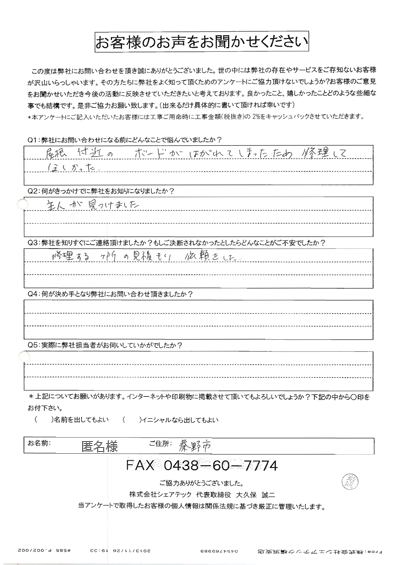 お客様のお声をお聞かせください
この度は弊社にお問い合わせを頂き誠にありがとうございました。世の中には弊社の存在やサービスをご存知ないお客様
が沢山いらっしゃいます。その方たちに弊社をよく知って頂くためのアンケートにご協力頂けないでしょうか?お客様のご意見
をお聞かせいただき今後の活動に反映させていただきたいと考えております。良かったこと、嬉しかったことどのような些細な
事でも結構です。是非ご協力お願い致します。(出来るだけ具体的に書いて頂ければ幸いです)
*本アンケートにご記入いただいたお客様には工事ご用命時に工事金額(税抜き)の2%をキャッシュバックさせていただきます。
Q1:弊社にお問い合わせになる前にどんなことで悩んでいましたか?
屋根付近の ボードがはがれてしまったため 修理して
ほしかった
Q2:何がきっかけでに弊社をお知りになりましたか?
主人が見つけました
Q3:弊社を知りすぐにご連絡頂けましたか?もしご決断されなかったとしたらどんなことがご不安でしたか?
修理するヶ所の見積もり 依頼をした
Q4:何が決め手となり弊社にお問い合わせ頂きましたか?
Q5:実際に弊社担当者がお伺いしていかがでしたか?
*上記についてお願いがあります。インターネットや印刷物に掲載させて頂いてもよろしいでしょうか?下記の中から〇印を
お付下さい。
( )名前を出してもよい ( )イニシャルなら出してもよい
お名前: 匿名様 ご住所: 秦野市
FAX 0438-60-7774
ご協力ありがとうございました。
株式会社シェアテック 代表取締役 大久保 誠二
当アンケートで取得したお客様の個人情報は関係法規に基づき厳正に管理いたします。